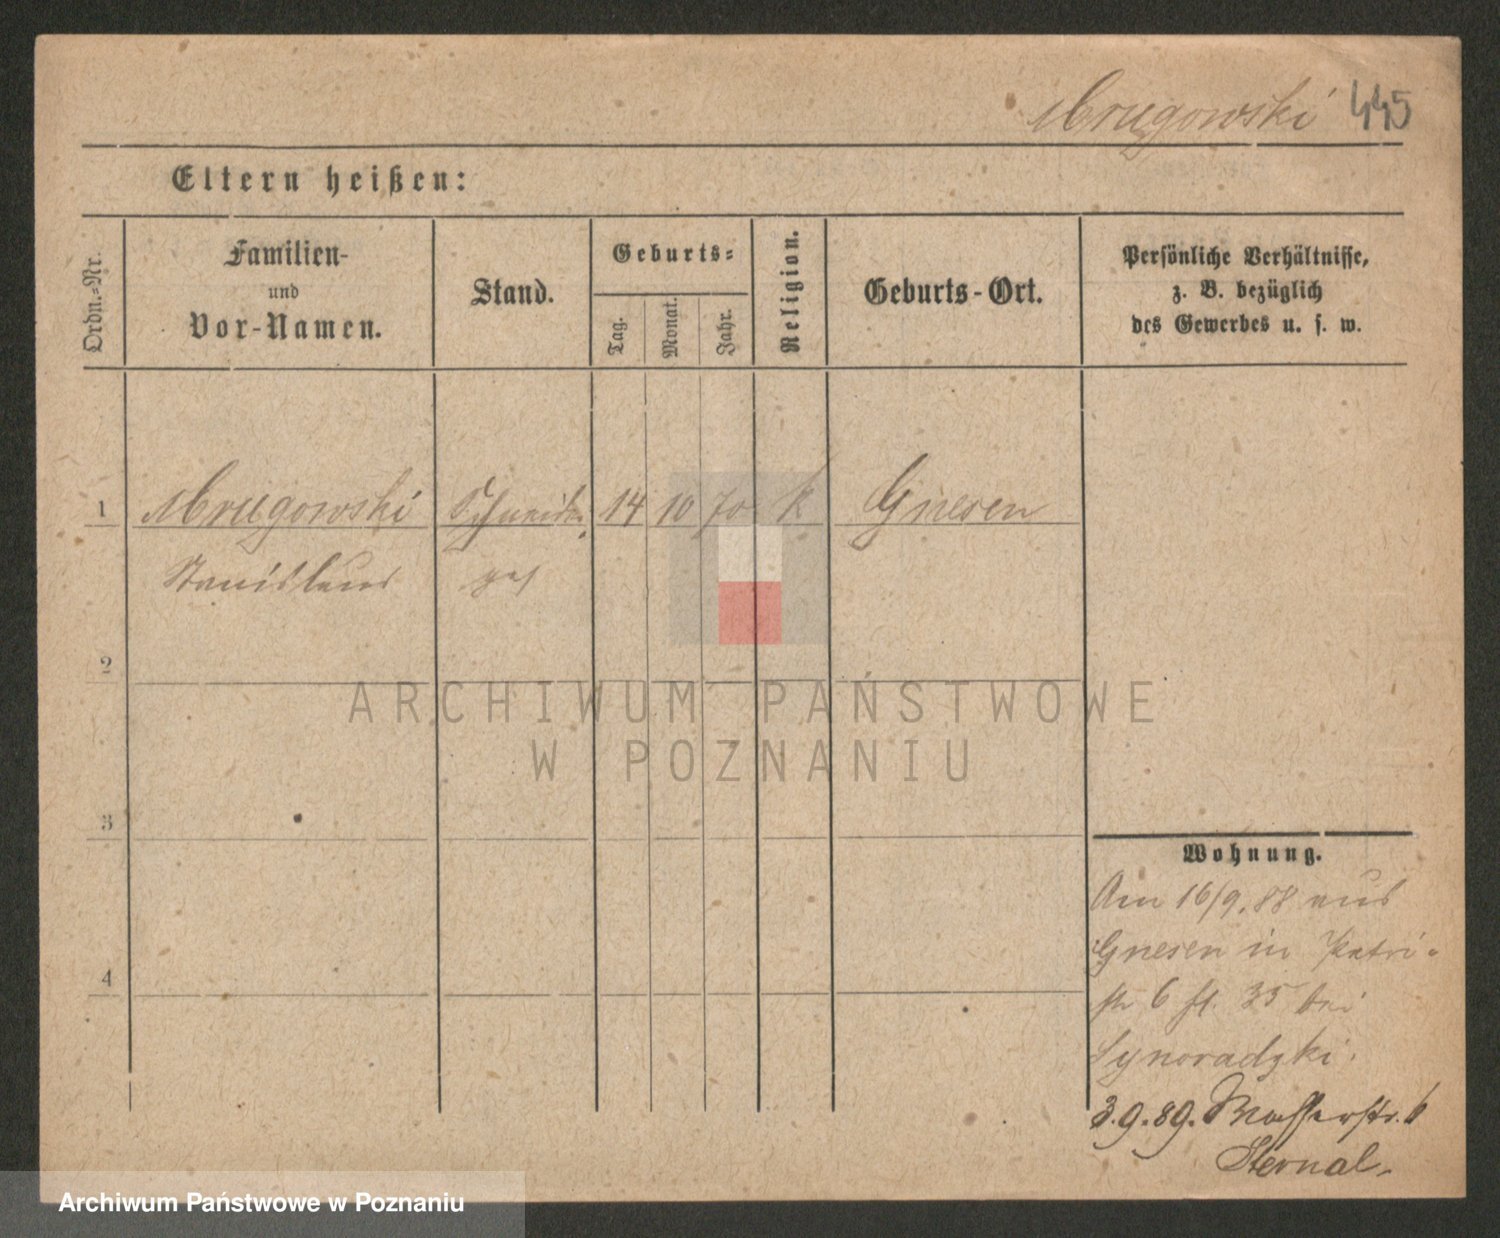 Mrugowski 445
Eltern heißen:
Ordn.-Nr.
Familien-
und
Vor-Namen.
Stand.
Geburts-
Tag.
Monat.
Jahr.
Religion.
Geburts-Ort.
Persönliche Verhältnisse,
z. B. bezüglich
des Gewerbes u. s. w.
1 Mrugowski Schneider 14 10 70 k Gnesen
Stanislaus
2
3
4
Wohnung.
Am 16/9.88 aus
Gnesen in
6 35 bei
Synoradzki.
3.9.89. Wasserstr. 6
Sternal.
ARCHIWUM PAŃSTWOWE
W POZNANIU
Archiwum Państwowe w Poznaniu